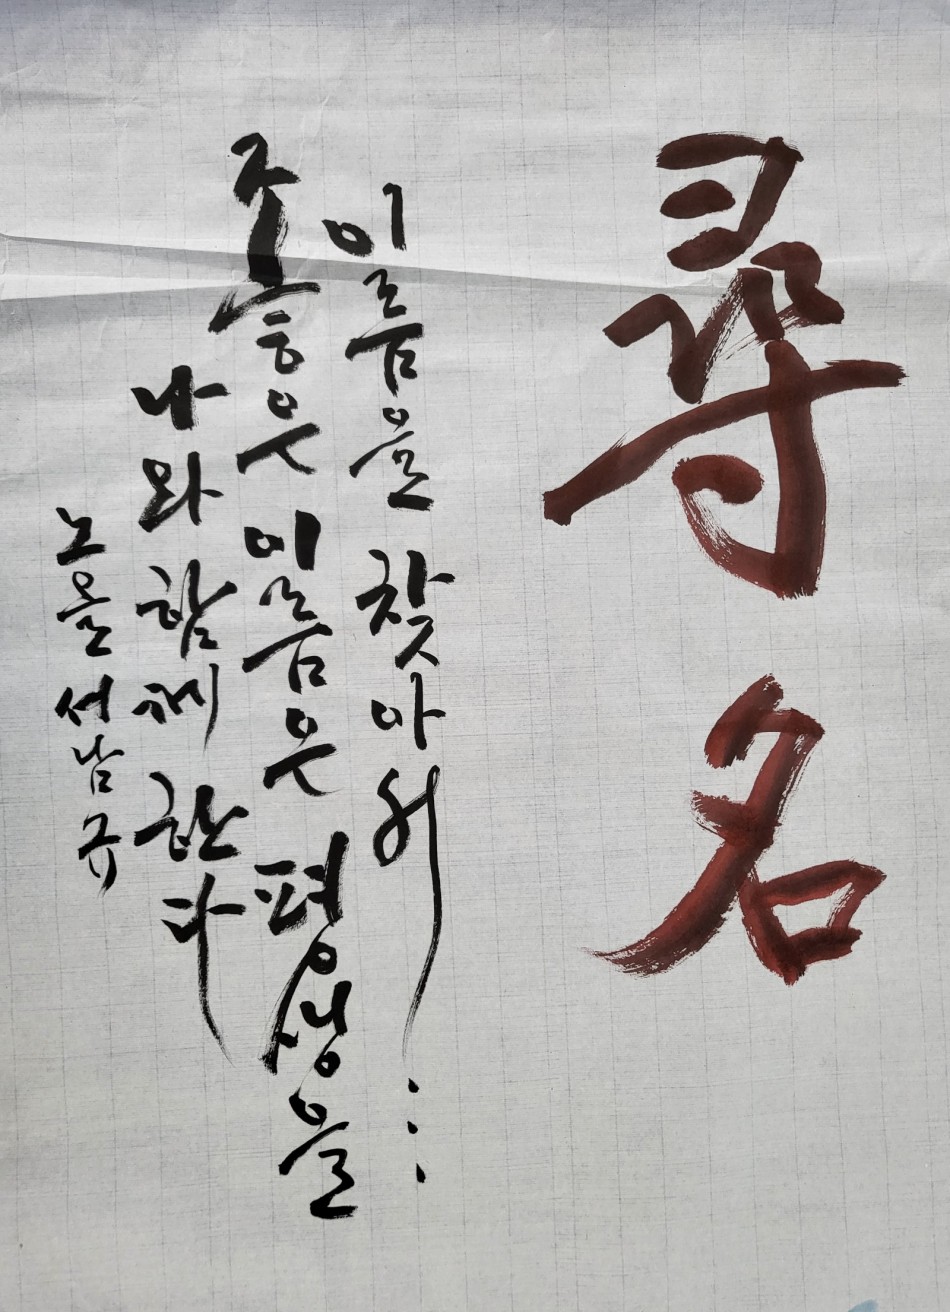 尋名
이름을 찾아서...
좋은 이름은 평생을
나와 함께 한다
노을 서남규